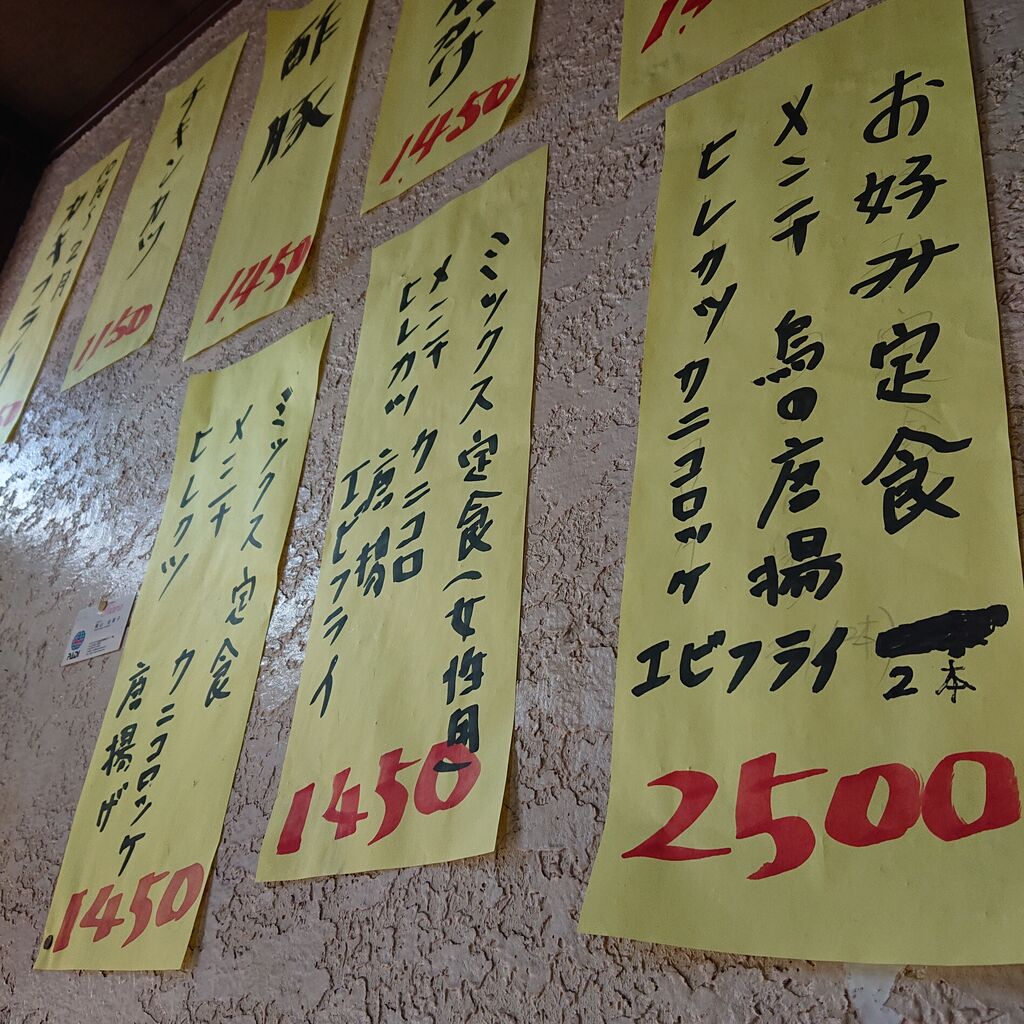 お好み定食
メンチ 鳥の唐揚
ヒレカツ カニコロッケ
エビフライ 2本
2500
1450
酢豚
1450
チキンカツ
1150
2月
カキフライ
ミックス定食(女性用)
メンチ カニコロ
ヒレカツ 唐揚
エビフライ
1450
ミックス定食
メンチ カニコロッケ
ヒレカツ 唐揚ゲ
1450